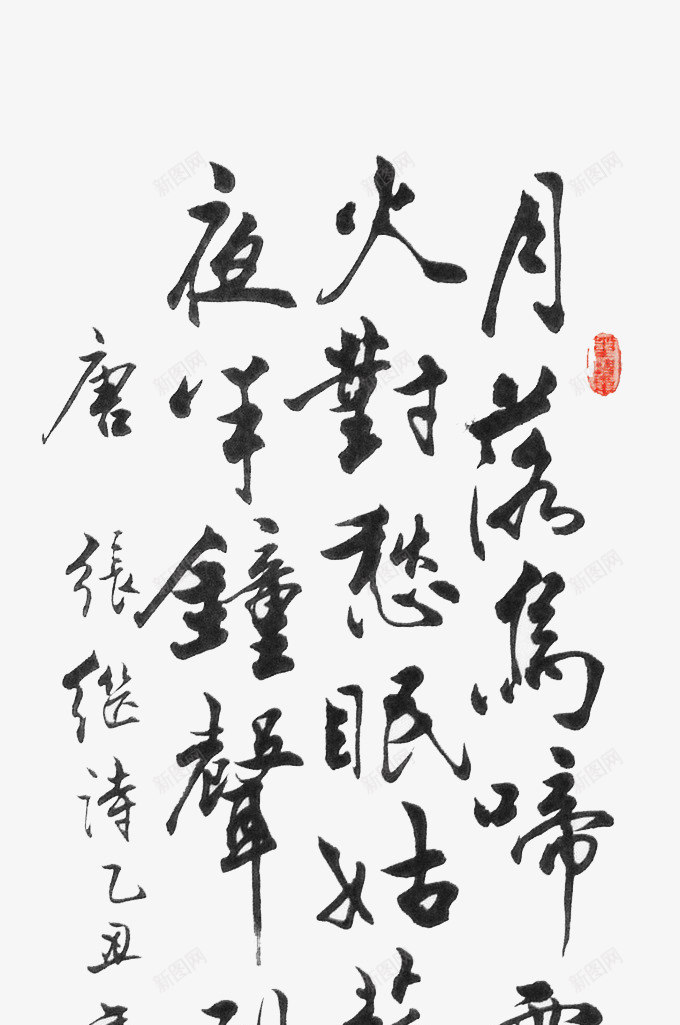 月落烏啼
火對愁眠姑
夜半鐘聲
唐 張繼詩 乙丑
新图网